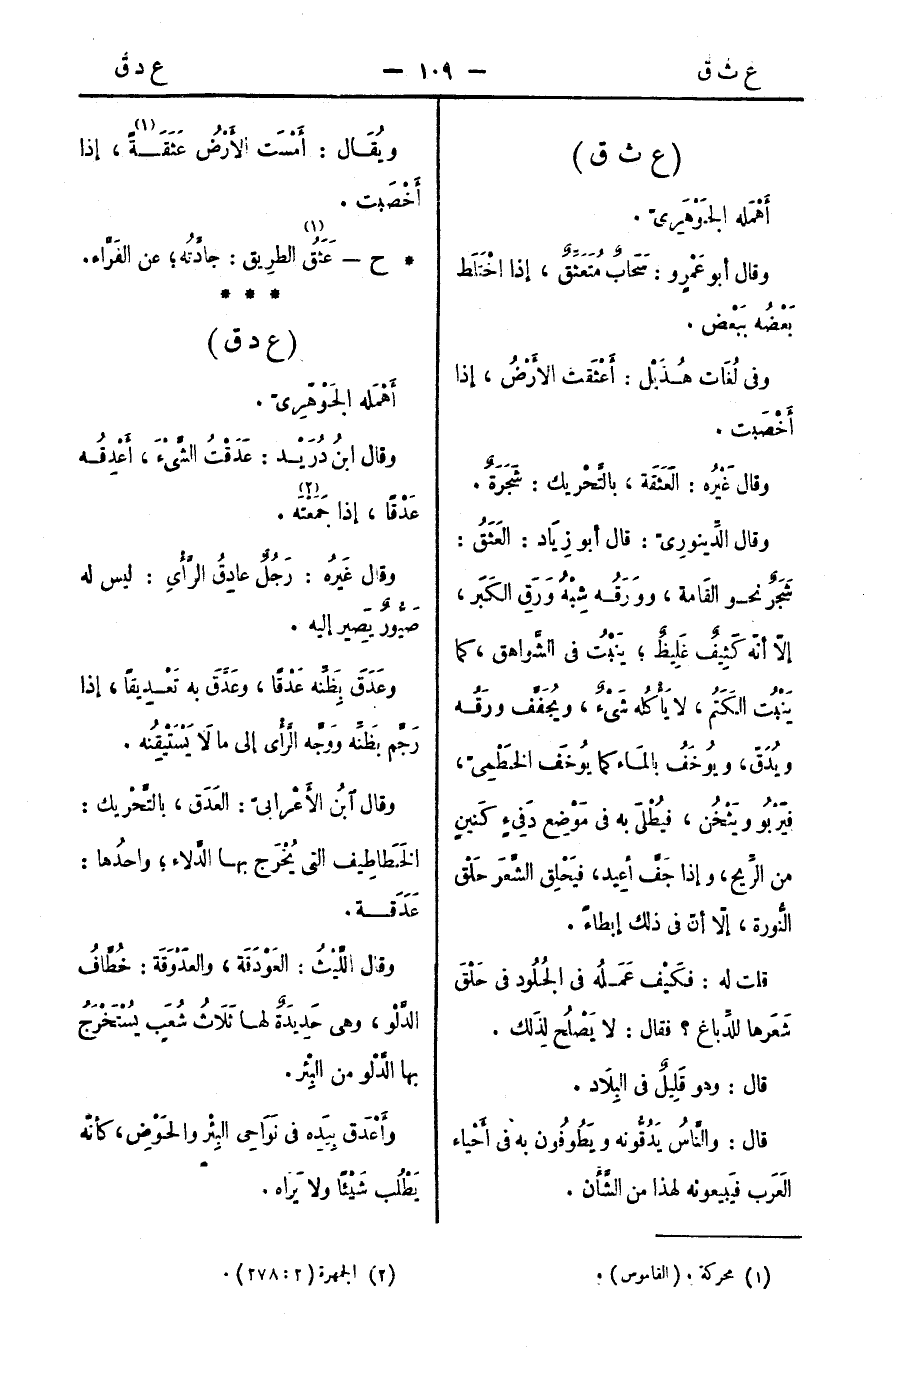 ع ث ق — ١٠٩ — ع د ق
(ع ث ق)
أَهْمَله الجَوْهَرِىّ .
وقال أبو عَمْرٍو : سَحَابٌ مُتَعَثِّقٌ ، إذا اخْتَلَط
بَعْضُه بِبَعْض .
وفى لُغَات هُـذَيْل : أَعْثَقَت الأَرْضُ ، إذا
أَخْصَبت .
وقال غَيْرُه : العَثَقَة ، بالتَّحْريك : شَجَرَةٌ .
وقال الدِّينورىّ : قال أبو زِيَاد : العَثَقُ :
شَجَرٌ نحـو القَامة ، ووَرَقُـه شِبْهُ وَرَقِ الكَبَر ،
إلّا أنّه كَثِيفٌ غَلِيظٌ ؛ يَنْبُت فى الشَّواهق ، كما
يَنْبُت الكَتَمُ ، لا يَأْكُله شَىْءٌ ، ويُجَفَّف ورقُـه
ويُدَقّ ، ويُوخَفُ بالمَـاء كما يُوخَف الخَطْمِىّ ،
فيَرْبُو ويَثْخُن ، فيُطْلَى به فى مَوْضِع دَفِىءٍ كَنِينٍ
من الرِّيح ، وإذا جَفَّ أعِيد ، فيَحْلِق الشَّعَر حَلْق
النُّورة ، إلّا أنّ فى ذلك إبطاءً .
قلت له : فكَيْف عَمَـلُه فى الجُلُود فى حَلْقَ
شَعَرها للدِّباغ ؟ فقال : لا يَصْلُح لِذَلك .
قال : وهو قَلِيلٌ فى البِلَاد .
قال : والنَّاسُ يَدُقُّونه ويَطُوفُون به فى أَحْياء
العَرَب فيَبِيعونه لهذا من الشَّأن .
ويُقَـال : أَمْسَت الأَرْضُ عَثَقَـةً (١) ، إذا
أَخْصَبت .
* ح — عَثَقُ (١) الطريق : جادَّتُه ؛ عن الفَرَّاء.
* * *
(ع د ق)
أَهْمَله الجَوْهَرِىّ .
وقال ابنُ دُرَيْـد : عَدَقْتُ الشَّىْءَ ، أَعْدِقُـه
عَدْقًا ، إذا جَمَعْتَه (٢) .
وقال غَيرُه : رَجُلٌ عادِقُ الرَّأْىِ : ليس له
صَيُّورٌ يَصِير إليه .
وعَدَقَ بِظَنِّه عَدْقًا ، وعَدَّق به تَعْـدِيقًا ، إذا
رَجَّم بظَنِّه ووَجَّه الرَّأْى إلى ما لَا يَسْتَيْقِنُه .
وقال ابْنُ الأَعْرابىّ : العَدَق ، بالتَّحْريك :
الخَطاطِيف التى يُخْرَج بهـا الدِّلاء ؛ واحدُها :
عَدَقَـــة .
وقال اللَّيْثُ : العَوْدَقَة ، والعَدْوَقَة : خُطَّافُ
الدَّلْو ، وهى حَدِيدَةٌ لهـا ثَلَاثُ شُعَبٍ يُسْتَخْرَجُ
بها الدَّلْو من البِئْر .
وأَعْدَق بِيَدِه فى نَوَاحِى البِئْر والحَوْضِ ، كأنّه
يَطْلُب شَيْئًا ولا يَراه .
(١) محركة . (القاموس) .
(٢) الجمهرة (٢ : ٢٧٨) .